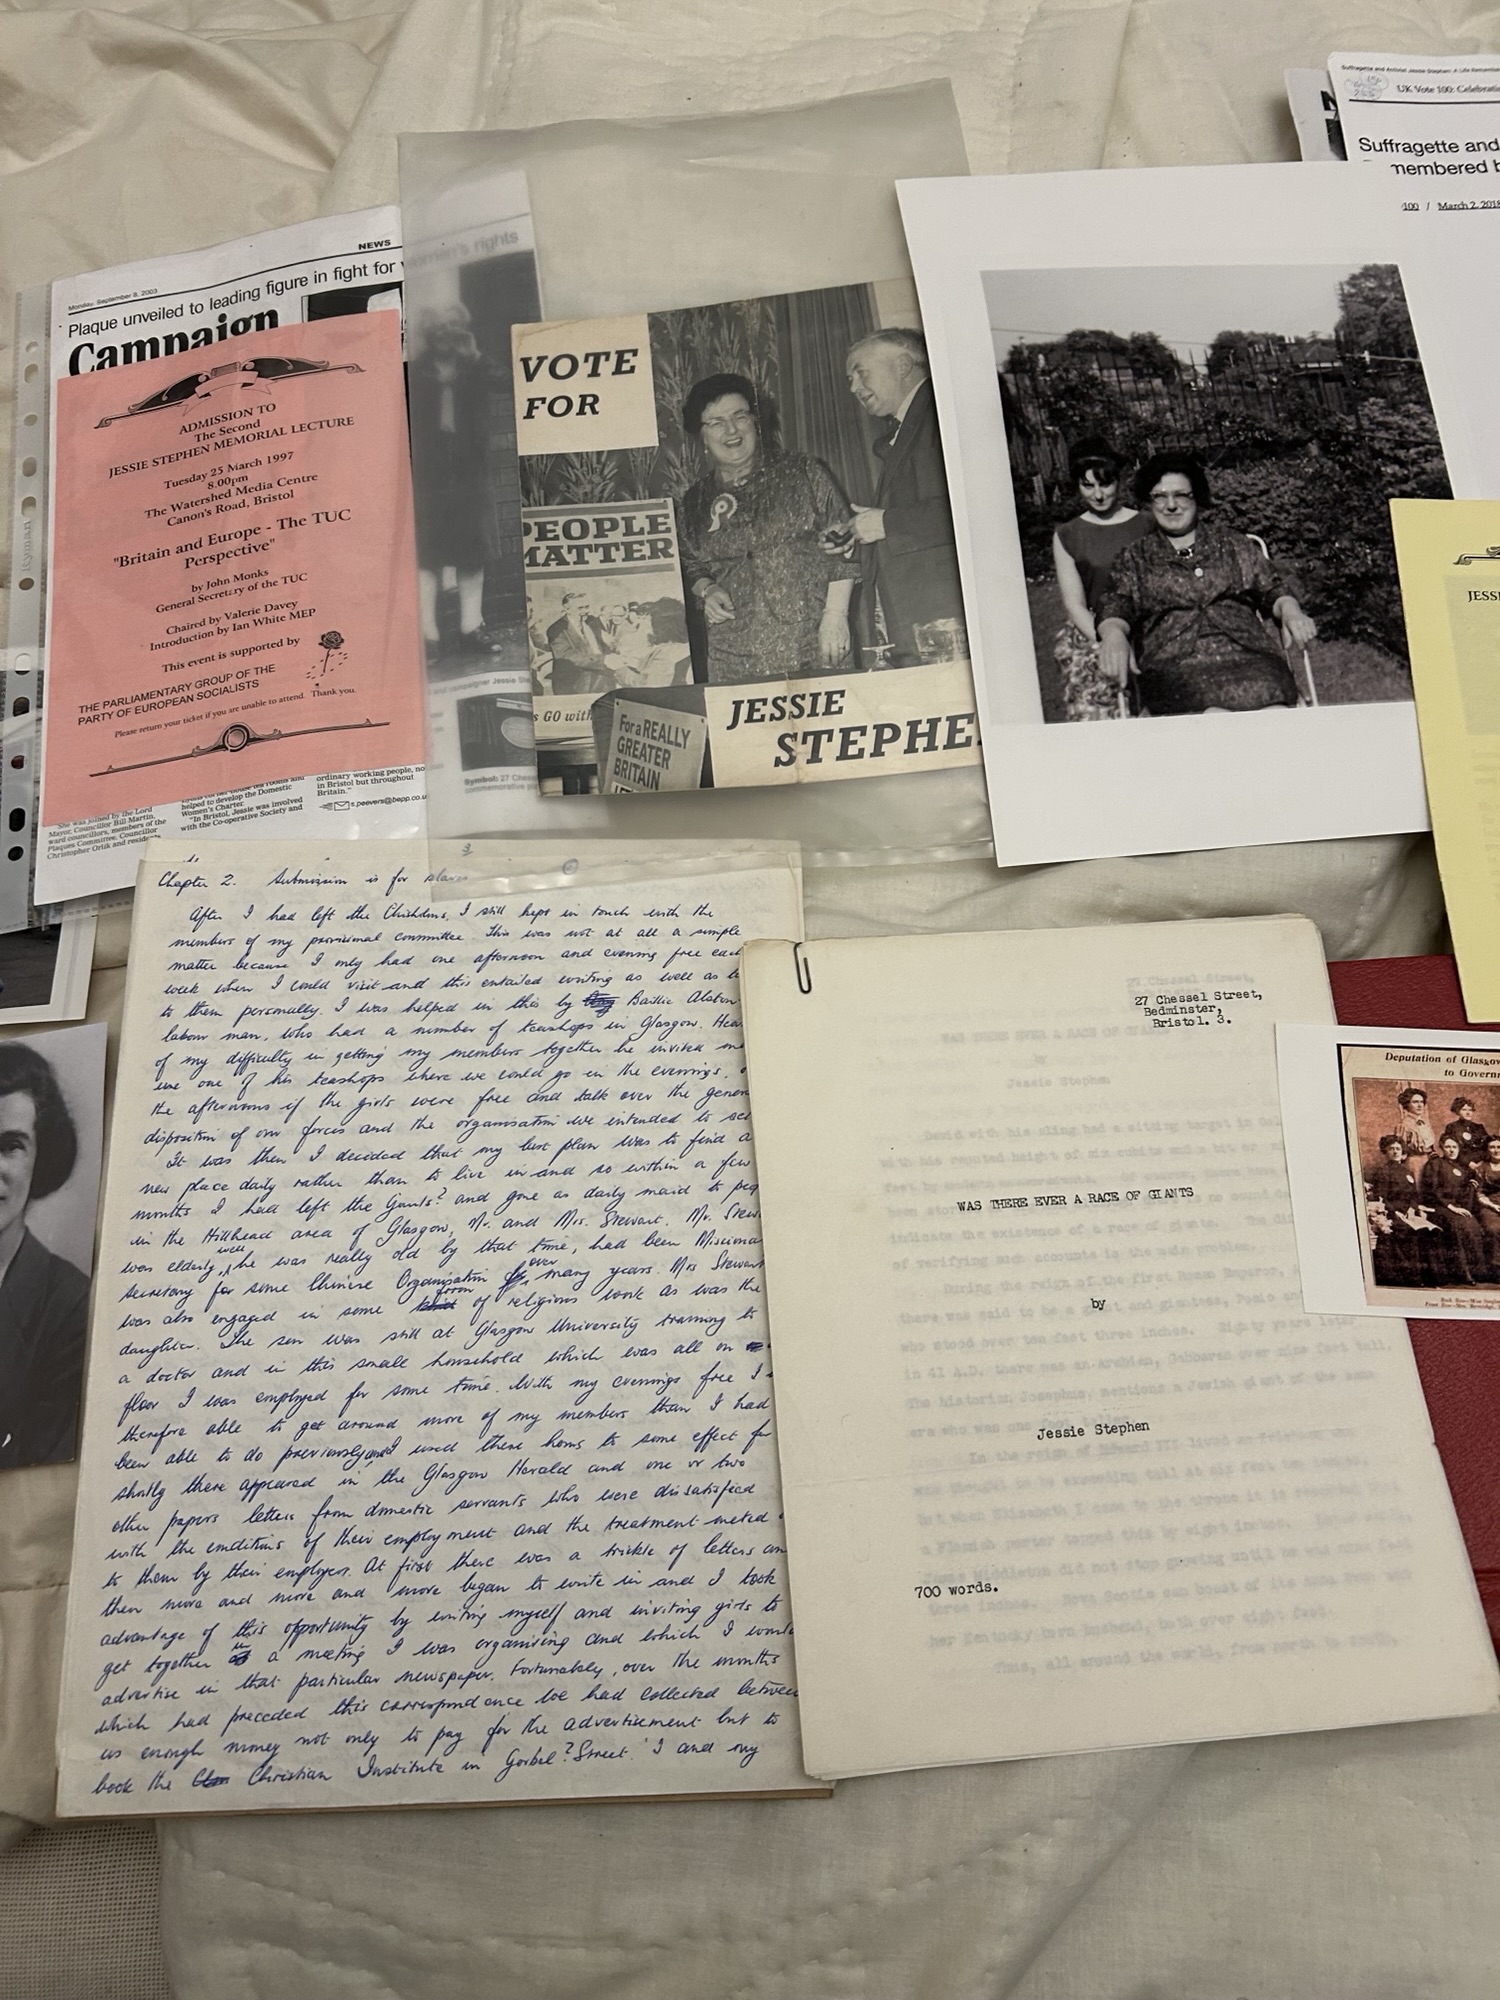 Suffragette and Activist Jessie Stephen: A Life Remembered
UK Vote 100: Celebrati
Suffragette and
membered b
100 / March 2, 2018
NEWS
Monday, September 8, 2003
Plaque unveiled to leading figure in fight for women's rights
Campaign
ADMISSION TO
The Second
JESSIE STEPHEN MEMORIAL LECTURE
Tuesday 25 March 1997
8.00pm
The Watershed Media Centre
Canon's Road, Bristol
"Britain and Europe - The TUC
Perspective"
by John Monks
General Secretary of the TUC
Chaired by Valerie Davey
Introduction by Ian White MEP
This event is supported by
THE PARLIAMENTARY GROUP OF THE
PARTY OF EUROPEAN SOCIALISTS
Please return your ticket if you are unable to attend. Thank you.
She was joined by the Lord
Mayor, Councillor Bill Martin,
ward councillors, members of the
Plaques Committee, Councillor
Christopher Orlik and
helped to develop the Domestic
Women's Charter.
"In Bristol, Jessie was involved
with the Co-operative Society and
ordinary working people, no
in Bristol but throughout
Britain."
s.peevers@bepp.co.u
campaigner Jessie Ste
Symbol: 27 Ches
commemorative
VOTE
FOR
PEOPLE
MATTER
s GO with
For a REALLY
GREATER
BRITAIN
JESSIE
STEPHE
JESSI
3
Chapter 2. Submission is for slaves
After I had left the Chisholms, I still kept in touch with the
members of my provisional committee. This was not at all a simple
matter because I only had one afternoon and evening free each
week when I could visit and this entailed writing as well as
to them personally. I was helped in this by Bailie Alston
labour man, who had a number of teashops in Glasgow. Hea
of my difficulty in getting my members together he invited me
use one of his teashops where we could go in the evenings,
the afternoons if the girls were free and talk over the gener
disposition of our forces and the organisation we intended to set
It was then I decided that my best plan was to find a
new place daily rather than to live in and so within a few
months I had left the Gants? and gone as daily maid to peo
in the Hillhead area of Glasgow, Mr. and Mrs. Stewart. Mr. Stew
was elderly, well, he was really old by that time, had been Missiona
secretary for some Chinese Organisation over many years. Mrs Stewart
was also engaged in some form of religious work as was the
daughter. The son was still at Glasgow University training to
a doctor and in this small household which was all on
floor I was employed for some time. With my evenings free I
therefore able to get around more of my members than I had
been able to do previously and I used these hours to some effect for
shortly there appeared in the Glasgow Herald and one or two
other papers letters from domestic servants who were dissatisfied
with the conditions of their employment and the treatment meted
to them by their employers. At first there was a trickle of letters an
then more and more and more began to write in and I took
advantage of this opportunity by writing myself and inviting girls to
get together in a meeting I was organising and which I would
advertise in that particular newspaper. Fortunately, over the months
which had preceded this correspondence we had collected between
us enough money not only to pay for the advertisement but to
book the Christian Institute in Gorbel? Street. I and my
27 Chessel Street,
Bedminster,
Bristol. 3.
WAS THERE EVER A RACE OF GIANTS
by
Jessie Stephen
700 words.
Deputation of Glasgow
to Govern